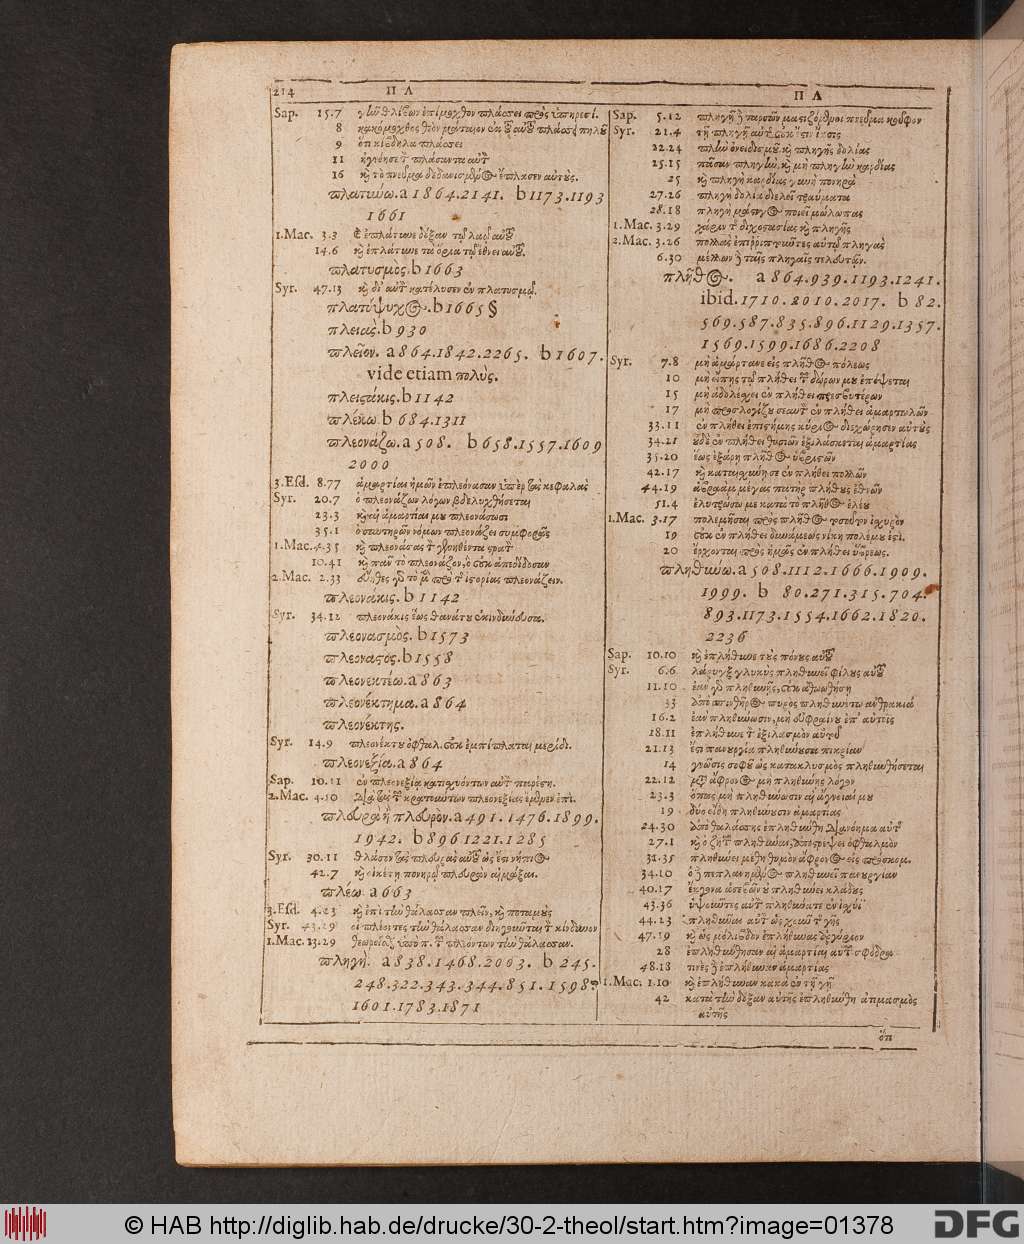 214 Π Λ
Π Λ
Sap. 15.7 πλάσσει πρὸς
8 κακόμοχθος θεὸν μάταιον
9 ὅτι κίβδηλα πλάσσει
11 ἠγνόησε τ̀ πλάσαντα αὐτ̀
16 κ̀ τὸ πνεῦμα ἔπλασεν αὐτούς.
πλατύνω. a 1864.2141. b 1173.1193
1661
1.Mac. 3.3 ἐπλάτυνε δόξαν τῷ λαῷ αὐτοῦ
14.6 κ̀ ἐπλάτυνε τὰ ὅρια τῷ ἔθνει αὐτοῦ.
πλατυσμὸς. b 1663
Syr. 47.13 κατέλυσεν ἐν πλατυσμῷ.
πλατύψυχος. b 1665 §
πλειας. b 930
πλεῖον. a 864.1842.2265. b 1607.
vide etiam πολύς.
πλειςάκις. b 1142
πλέκω. b 684.1311
πλεονάζω. a 508. b 658.1557.1609
2000
3.Esd. 8.77 ἁμαρτίαι ἡμῶν ἐπλεόνασαν ὑπὲρ τὰς κεφαλὰς
Syr. 20.7 ὁ πλεονάζων λόγων βδελυχθήσεται
23.3 κ̀ αἱ ἁμαρτίαι μου πλεονάσωσι
35.1 ὁ συντηρῶν νόμον πλεονάζει συμφορὰς
1.Mac. 4.35
10.41 κ̀ πᾶν τὸ πλεονάζον, ὃ οὐκ ἀπεδίδοσαν
2.Mac. 2.33 ἱςορίας πλεονάζειν.
πλεονάκις. b 1142
Syr. 34.12 πλεονάκις ἕως θανάτου ἐκινδύνευσα.
πλεονασμὸς. b 1573
πλεοναςος. b 1558
πλεονεκτέω. a 863
πλεονέκτημα. a 864
πλεονέκτης.
Syr. 14.9 πλεονέκτου ὀφθαλ. οὐκ ἐμπίπλαται μερίδι.
πλεονεξία. a 864
Sap. 10.11 ἐν πλεονεξίᾳ κατισχυόντων αὐτ̀ παρέςη.
2.Mac. 4.50 πλεονεξίας ἔμενεν ἐπὶ.
πλευρὰ ἢ πλευρὸν. a 491.1476.1899.
1942. b 896 1221.1285
Syr. 30.11 θλάσον τὰς πλευρὰς αὐτοῦ ὡς ἔςι νήπιος
42.7 κ̀ οἰκέτῃ πονηρῷ πλευρὰν αἱμάξαι.
πλέω. a 663
3.Esd. 4.23 κ̀ ἐπὶ τὴν θάλασσαν πλεῖν, κ̀ ποταμοὺς
Syr. 43.29 οἱ πλέοντες τὴν θάλασσαν διηγοῦνται τ̀ κίνδυνον
1.Mac. 13.29 θεωρεῖσθαι ὑπὸ π. τ̀ πλεόντων τὴν θάλασσαν.
πληγὴ. a 838.1468.2003. b 245.
248.322.343.344.851.1598.
1601.1783.1871
Sap. 5.12
Syr. 21.4
22.24 κ̀ πληγῆς δολίας
25.15 πᾶσαν πληγὴν, κ̀ μὴ πληγὴν καρδίας
25 κ̀ πληγὴ καρδίας γυνὴ πονηρὰ
27.26 πληγὴ δολία διελεῖ τραύματα
28.18 πληγὴ μάςιγος ποιεῖ μώλωπας
1.Mac. 3.29 χάριν τ̀ διχοςασίας κ̀ πληγῆς
2.Mac. 3.26 πολλὰς ἐπιρριπτοῦντες αὐτῷ πληγὰς
6.30 μέλλων δὲ ταῖς πληγαῖς τελευτᾶν.
πλῆθος. a 864.939.1193.1241.
ibid. 1710.2010.2017. b 82.
569.587.835.896.1129.1357.
1569.1599.1686.2208
Syr. 7.8 μὴ ἁμάρτανε εἰς πλῆθος πόλεως
10 μὴ εἴπῃς τῷ πλήθει τ̀ δώρων μου ἐπόψεται
15 μὴ ἀδολέσχει ἐν πλήθει πρεσβυτέρων
17 μὴ προσλογίζου σεαυτ̀ ἐν πλήθει ἁμαρτωλῶν
33.11 ἐν πλήθει ἐπιςήμης κύριος διεχώρισεν αὐτοὺς
34.21 οὐδὲ ἐν πλήθει θυσιῶν ἐξιλάσκεται ἁμαρτίας
35.20 ἕως ἐξάρῃ πλῆθος ὑβριςῶν
42.17 κ̀ καταισχύνῃ σε ἐν πλήθει πολλῶν
44.19 ἀβραὰμ μέγας πατὴρ πλήθους ἐθνῶν
51.4 ἐλυτρώσω με κατὰ τὸ πλῆθος ἐλέου
1.Mac. 3.17 πολεμῆσαι πρὸς πλῆθος τοσοῦτον ἰσχυρὸν
19 οὐκ ἐν πλήθει δυνάμεως νίκη πολέμου ἐςὶ.
20 ἔρχονται πρὸς ἡμᾶς ἐν πλήθει ὕβρεως.
πληθύνω. a 508.1112.1666.1909.
1999. b 80.271.315.704.
893.1173.1554.1662.1820.
2236
Sap. 10.10 κ̀ ἐπλήθυνε τοὺς πόνους αὐτοῦ
Syr. 6.6 λάρυγξ γλυκὺς πληθυνεῖ φίλους αὐτοῦ
11.10 ἐὰν γὰρ πληθυνῇς, οὐκ ἀθωωθήσῃ
33 ἀπὸ σπινθῆρος πυρὸς πληθύνεται ἀνθρακιὰ
16.2 ἐὰν πληθύνωσιν, μὴ εὐφραίνου ἐπ' αὐτοῖς
18.11 ἐπλήθυνε τ̀ ἐξιλασμὸν αὐτοῦ
21.13 ἔςι πανουργία πληθύνουσα πικρίαν
14 γνῶσις σοφοῦ ὡς κατακλυσμὸς πληθυνθήσεται
22.12 μετὰ ἄφρονος μὴ πληθύνῃς λόγον
23.3 ὅπως μὴ πληθύνωσιν αἱ ἄγνοιαί μου
19 δύο εἴδη πληθύνουσιν ἁμαρτίας
24.30 ἀπὸ θαλάσσης ἐπληθύνθη διανόημα αὐτ̀
27.1 κ̀ ὁ ζητ̀ πληθῦναι, ἀποςρέψει ὀφθαλμὸν
31.35 πληθύνει μέθη θυμὸν ἄφρονος εἰς πρόσκομ.
34.10 ὁ δὲ πεπλανημένος πληθυνεῖ πανουργίαν
40.17 ἔκγονα ἀσεβῶν οὐ πληθύνει κλάδους
43.36 ὑψοῦντες αὐτ̀ πληθύνατε ἐν ἰσχύϊ
44.23 πληθῦναι αὐτ̀ ὡς χοῦν τ̀ γῆς
47.19 κ̀ ὡς μόλιβδον ἐπλήθυνας ἀργύριον
28 ἐπληθύνθησαν αἱ ἁμαρτίαι αὐτ̀ σφόδρα
48.18 τινὲς δὲ ἐπλήθυναν ἁμαρτίας
1.Mac. 1.10 κ̀ ἐπλήθυναν κακὰ ἐν τῇ γῇ
42 κατὰ τὴν δόξαν αὐτῆς ἐπληθύνθη ἀτιμασμὸς
αὐτῆς
ὅτι
© HAB http://diglib.hab.de/drucke/30-2-theol/start.htm?image=01378
DFG